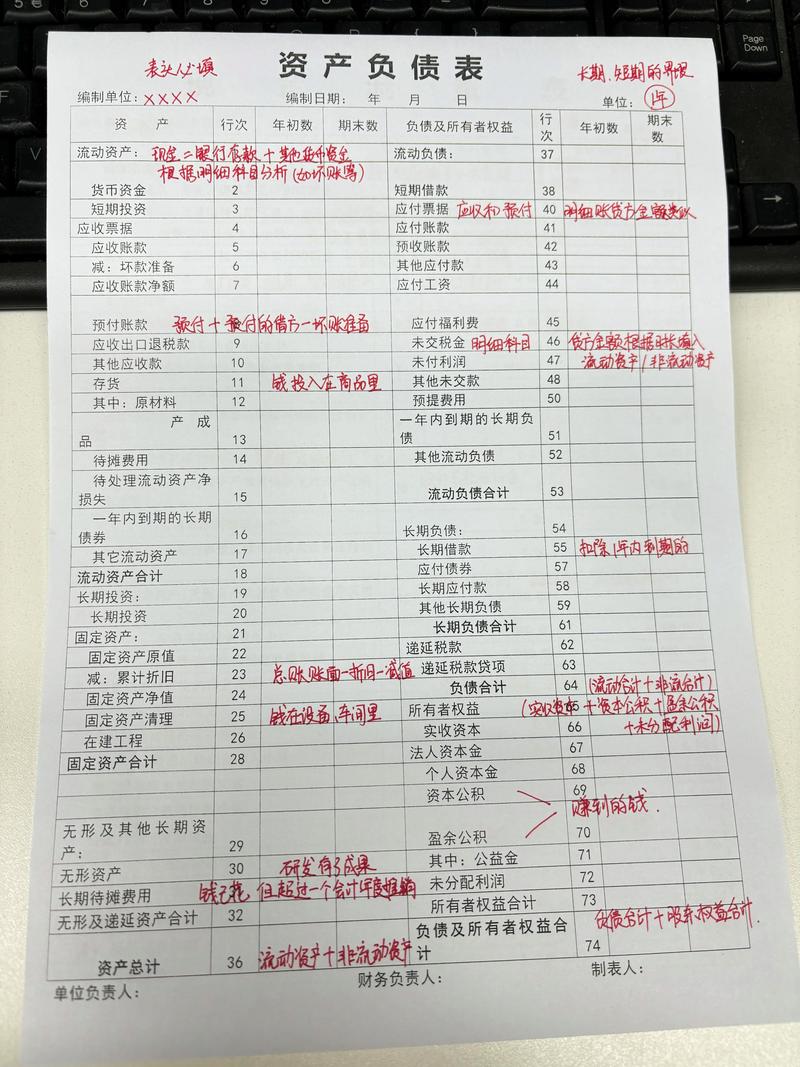 表头必填
资产负债表
长期、短期的界限
编制单位：XXXX 编制日期： 年 月 日 单位： 1年
资 产 行次 年初数 期末数 负债及所有者权益 行次 年初数 期末数
流动资产： 现金=银行存款+其他货币资金 流动负债： 37
根据明细科目分析(如坏账等)
货币资金 2 短期借款 38
短期投资 3 应付票据 应收和预付 40 明细账贷方金额
应收票据 4 应付账款 41
应收账款 5 预收账款 42
减：坏款准备 6 其他应付款 43
应收账款净额 7 应付工资 44
预付账款 预付+预付的借方一坏账准备 应付福利费 45
应收出口退税款 9 未交税金 明细科目 46 贷方金额根据 填入
其他应收款 10 未付利润 47 流动资产/非流动资产
存货 11 钱投入在商品里 其他未交款 48
其中：原材料 12 预提费用 50
产成品 13 一年内到期的长期负债 51
待摊费用 14 其他流动负债 52
待处理流动资产净损失 15 流动负债合计 53
一年内到期的长期债券 16 长期负债： 54
其它流动资产 17 长期借款 55 扣除1年内到期的
流动资产合计 18 应付债券 57
长期投资： 19 长期应付款 58
长期投资 20 其他长期负债 59
固定资产： 21 长期负债合计 61
固定资产原值 22 递延税款 62
减：累计折旧 23 总账账面一折旧一减值 递延税款贷项 63
固定资产净值 24 负债合计 64 (流动合计+非流合计)
固定资产清理 25 钱在设备、车间里 所有者权益 65 (实收资本+资本公积+盈余公积
在建工程 26 实收资本 66 +未分配利润)
固定资产合计 28 法人资本金 67
个人资本金 68
资本公积 69
赚到的钱.
无形及其他长期资产： 29 盈余公积 70
无形资产 30 研发有了成果 其中：公益金 71
长期待摊费用 钱已花 但超过一个会计年度摊销 未分配利润 72
无形及递延资产合计 32 所有者权益合计 73
资产总计 36 流动资产+非流动资产 负债及所有者权益合计 74 负债合计+股东权益合计.
单位负责人： 财务负责人： 制表人：
Page Down